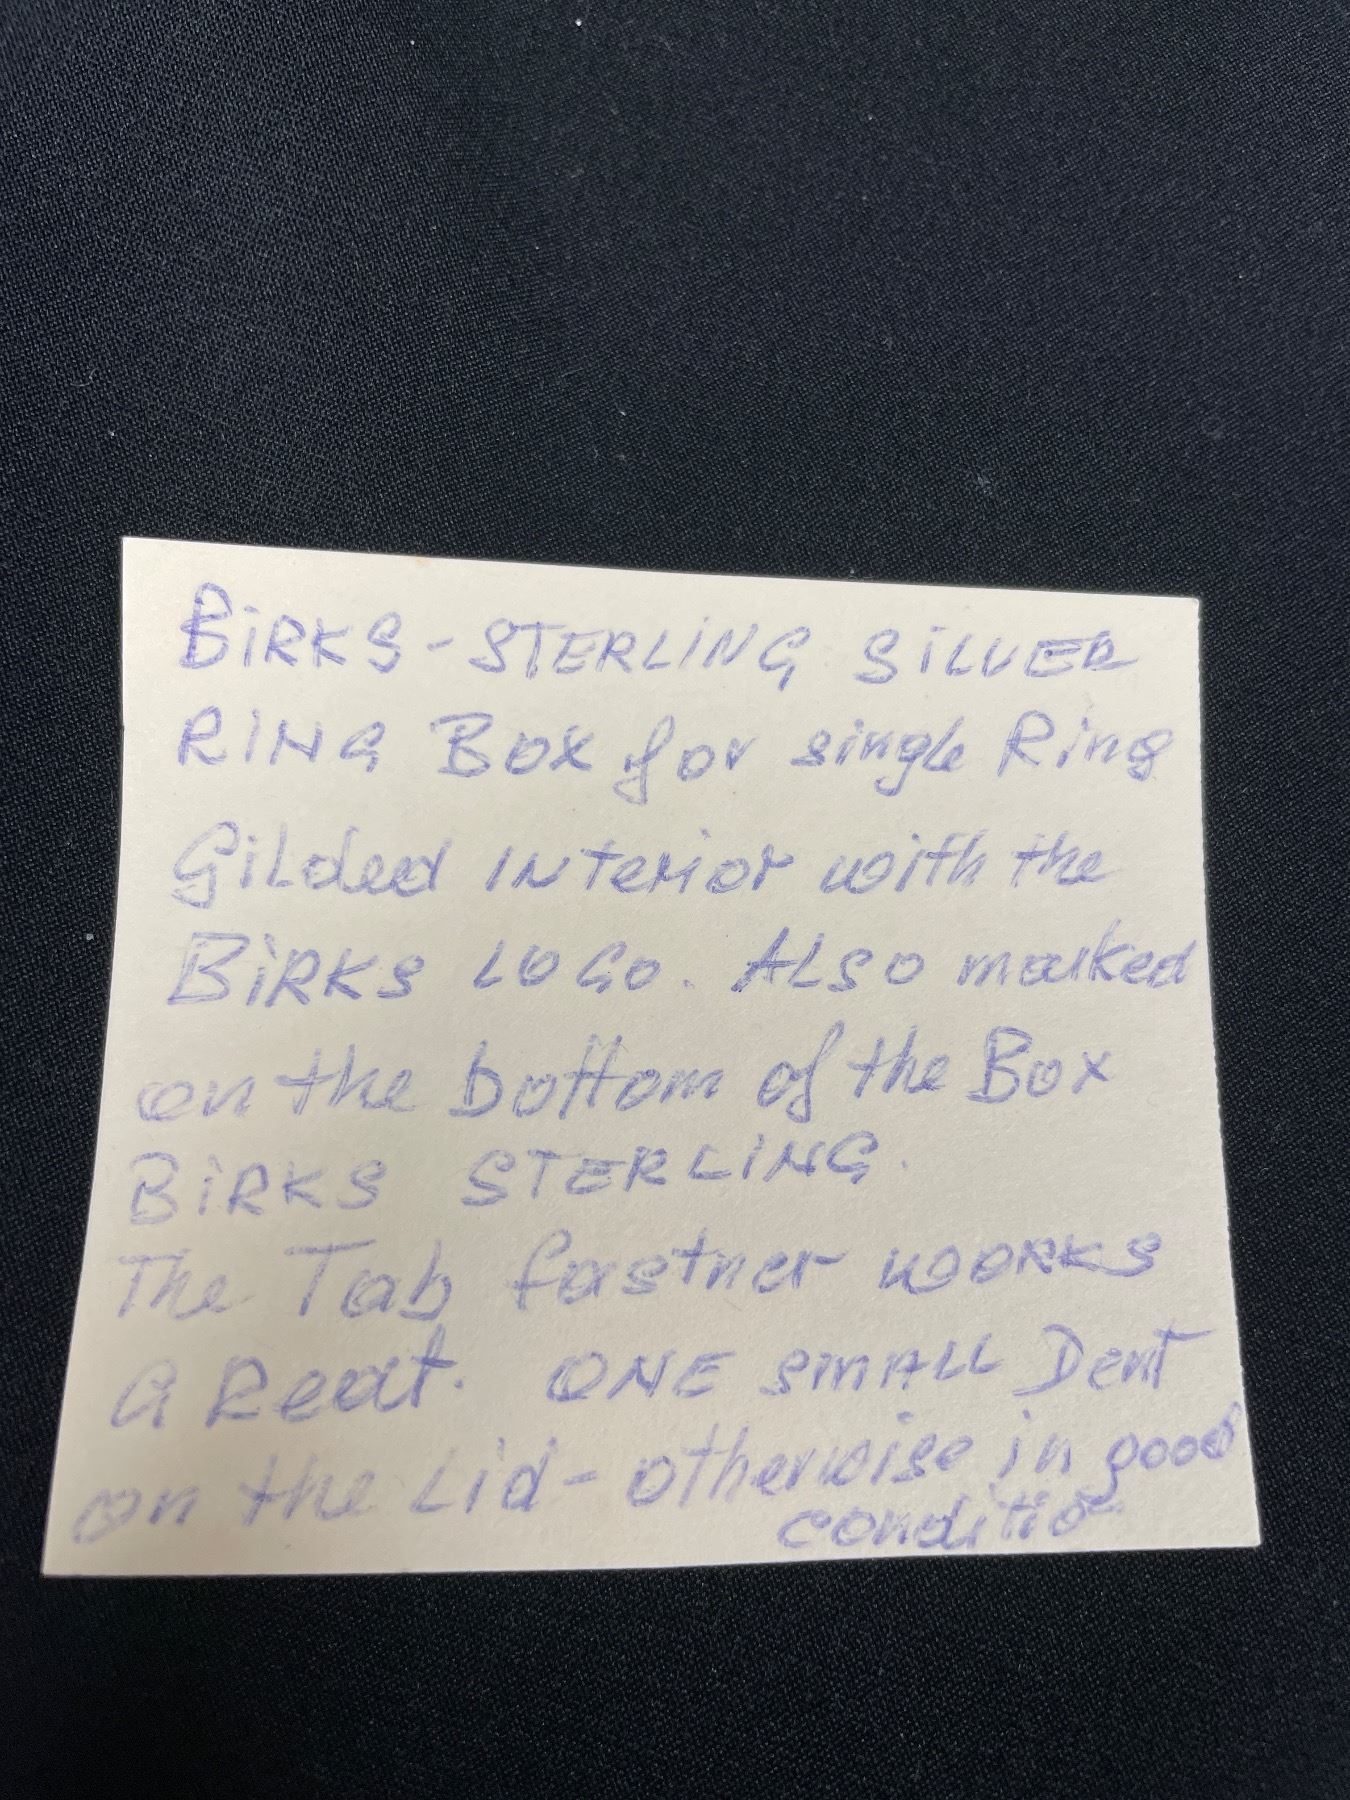 BiRKS - STERLiNG SiLVER
RiNG BOX for single Ring
GiLded INterior with the
BiRKS LOGO. ALSO marked
on the bottom of the Box
BiRKS STERLiNG.
The Tab fastner WORKS
GReat. ONE SmALL Dent
on the Lid - otherwise in good
conditio